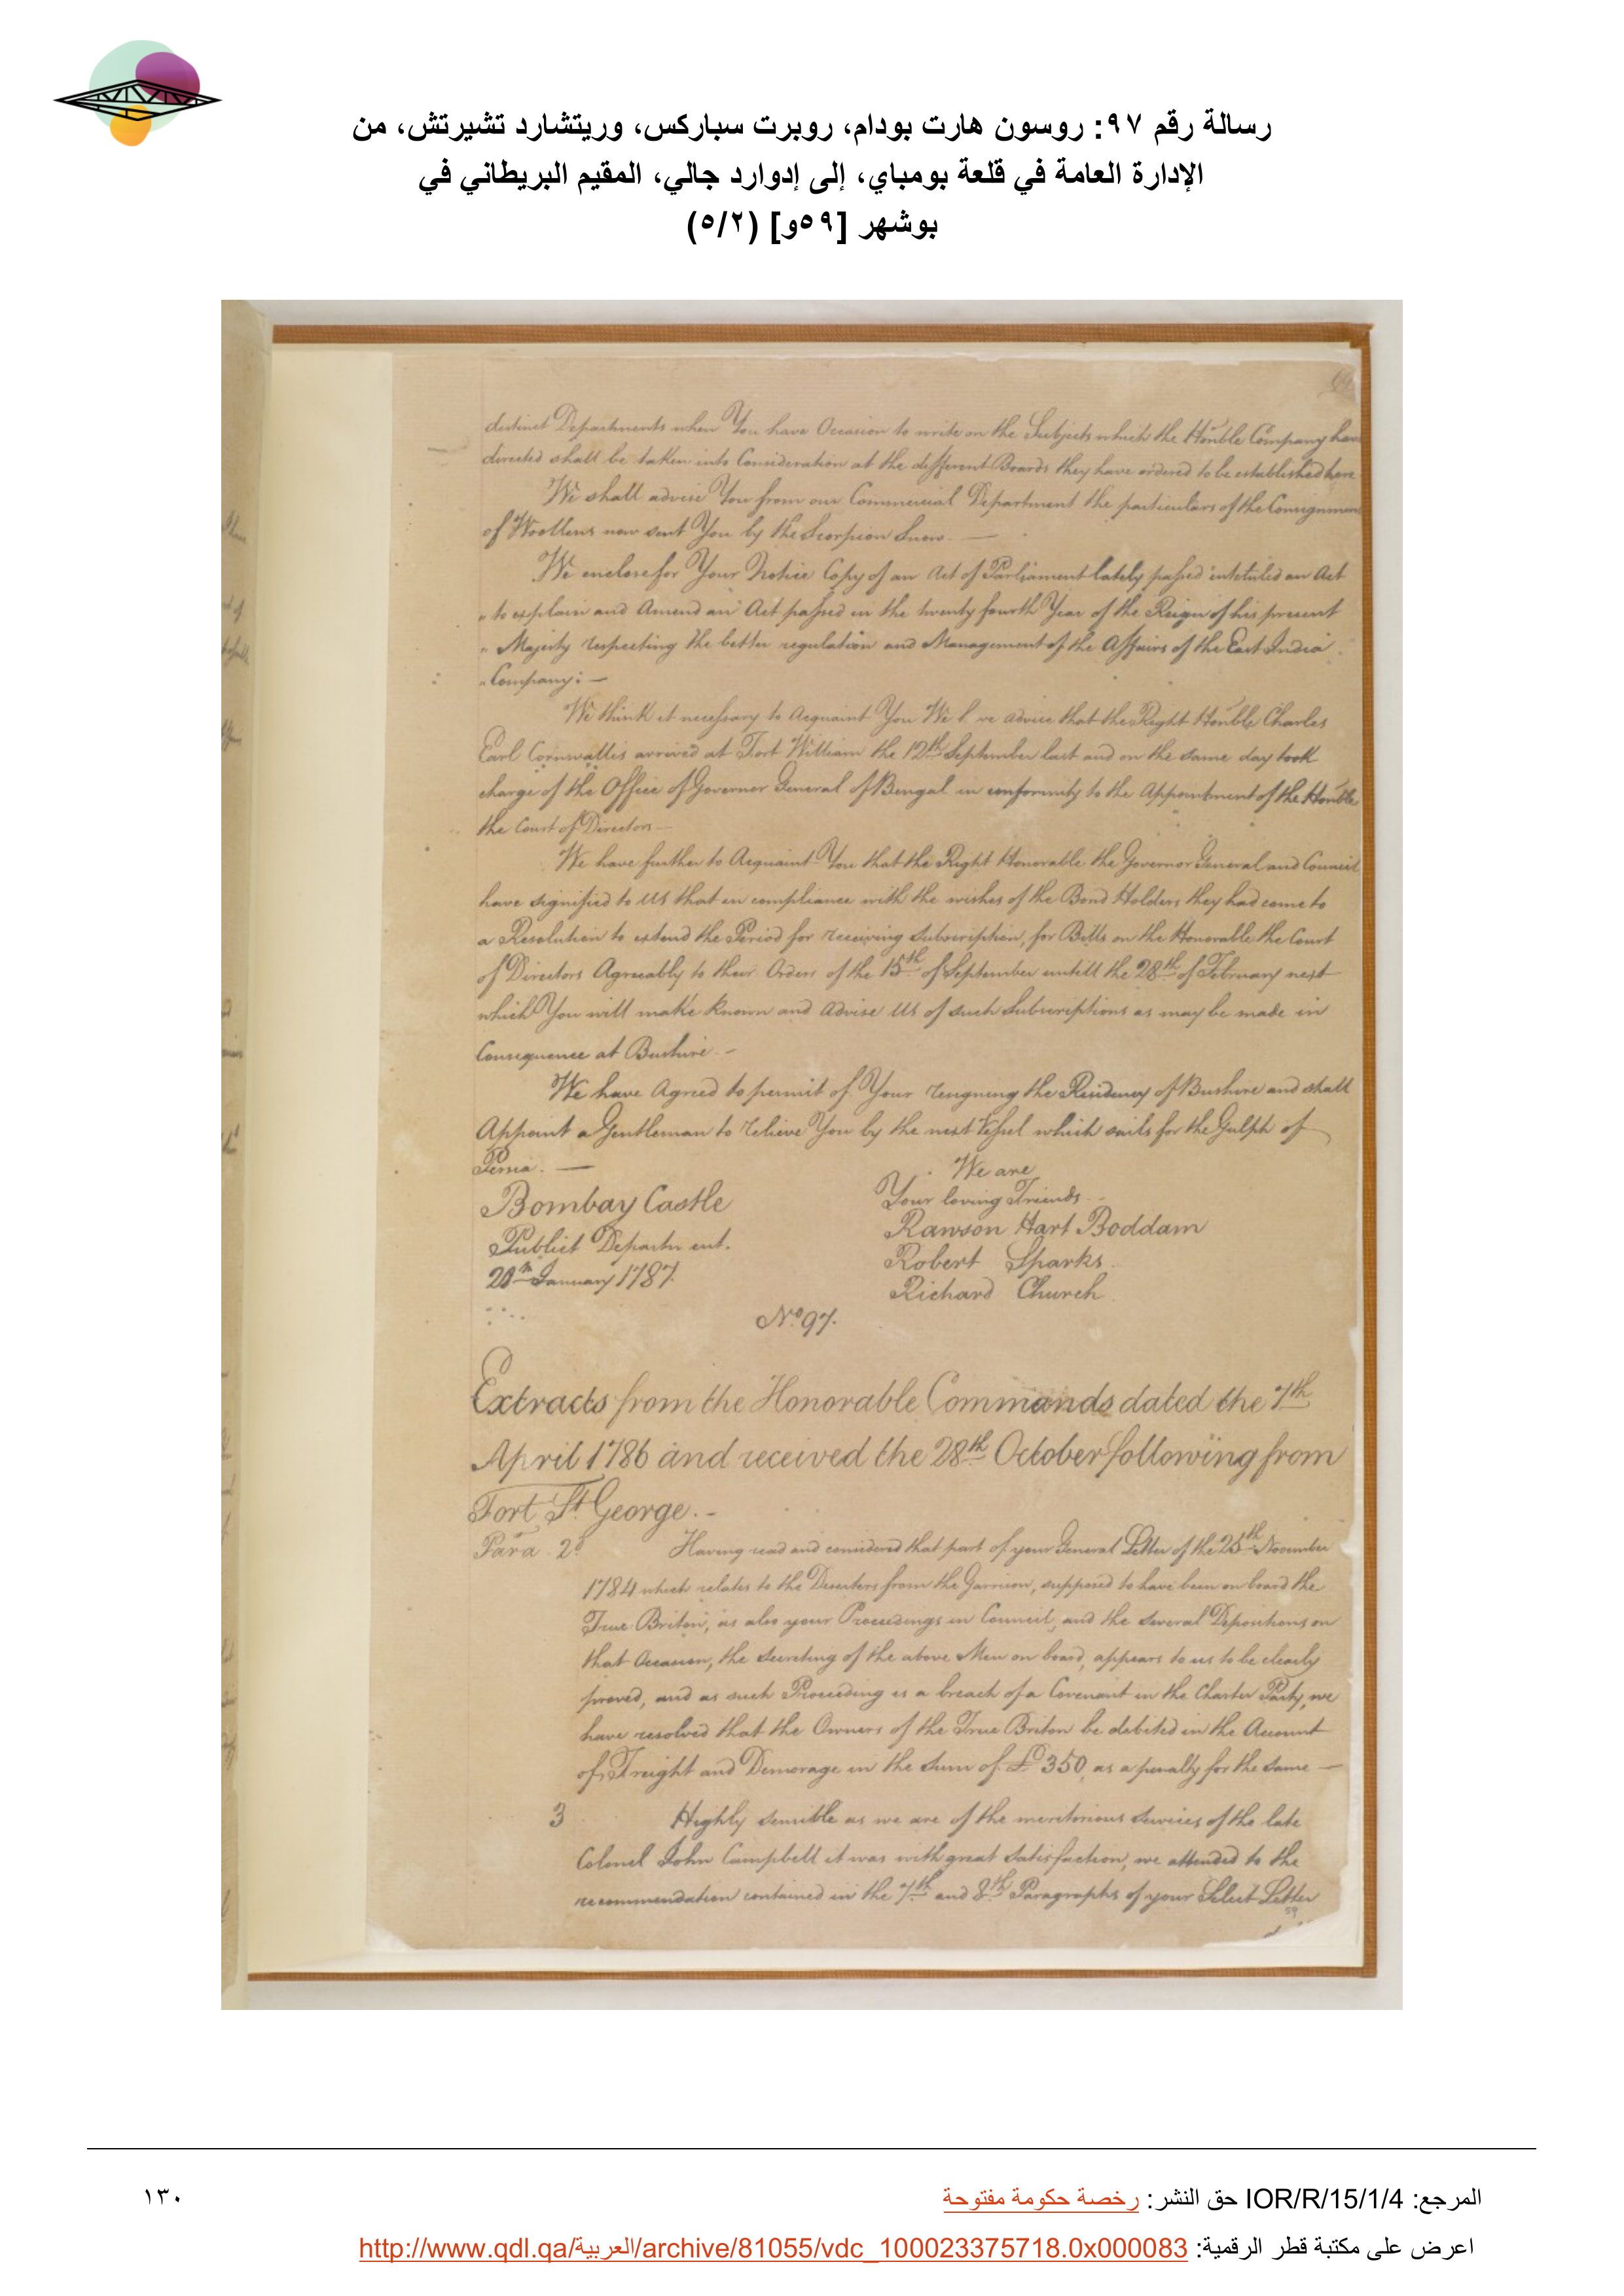 رسالة رقم ٩٧: روسون هارت بودام، روبرت سباركس، وريتشارد تشيرتش، من
الإدارة العامة في قلعة بومباي، إلى إدوارد جالي، المقيم البريطاني في
بوشهر [٥٩و] (٥/٢)
distinct Departments when You have Occasion to write on the Subjects which the Honble Company have
directed shall be taken into Consideration at the different Boards they have ordered to be established here
We shall advise You from our Commercial Department the particulars of the Consignment
of Woollens now sent You by the Scorpion Snow. —
We enclose for Your Notice Copy of an Act of Parliament lately passed intituled an Act
" to explain and Amend an Act passed in the twenty fourth Year of the Reign of his present
" Majesty respecting the better regulation and Management of the Affairs of the East India
" Company: —
We think it necessary to Acquaint You We h ve advice that the Right Honble Charles
Earl Cornwallis arrived at Fort William the 12th September last and on the same day took
charge of the Office of Governor General of Bengal in conformity to the Appointment of the Honble
the Court of Directors —
We have further to Acquaint You that the Right Honorable the Governor General and Council
have signified to Us that in compliance with the wishes of the Bond Holders they had come to
a Resolution to extend the Period for receiving Subscription, for Bills on the Honorable the Court
of Directors Agreeably to their Orders of the 15th of September untill the 28th of February next
which You will make known and Advise Us of such Subscriptions as may be made in
Consequence at Bushire. —
We have Agreed to permit of Your resigning the Residency of Bushire and shall
Appoint a Gentleman to relieve You by the next Vessel which sails for the Gulph of
Persia. —
We are
Your loving Friends
Rawson Hart Boddam
Robert Sparks
Richard Church
Bombay Castle
Publick Departm ent.
January 1787.
No 97.
Extracts from the Honorable Commands dated the 7th
April 1786 and received the 28th October following from
Fort St George. -
Para 2d Having read and considered that part of your General Letter of the 25th November
1784 which relates to the Deserters from the Garrison, supposed to have been on board the
True Briton, as also your Proceedings in Council, and the several Depositions on
that Occasion, the secreting of the above Men on board, appears to us to be clearly
proved, and as such Proceeding is a breach of a Covenant in the Charter Party, we
have resolved that the Owners of the True Briton be debited in the Account
of Freight and Demorage in the Sum of £ 350 as a penalty for the same —
3 Highly sensible as we are of the meritorious Services of the late
Colonel John Campbell it was with great Satisfaction, we attended to the
recommendation contained in the 7th and 8th Paragraphs of your Select Letter
59
المرجع: IOR/R/15/1/4 حق النشر: رخصة حكومة مفتوحة
١٣٠
اعرض على مكتبة قطر الرقمية: http://www.qdl.qa/العربية/archive/81055/vdc_100023375718.0x000083